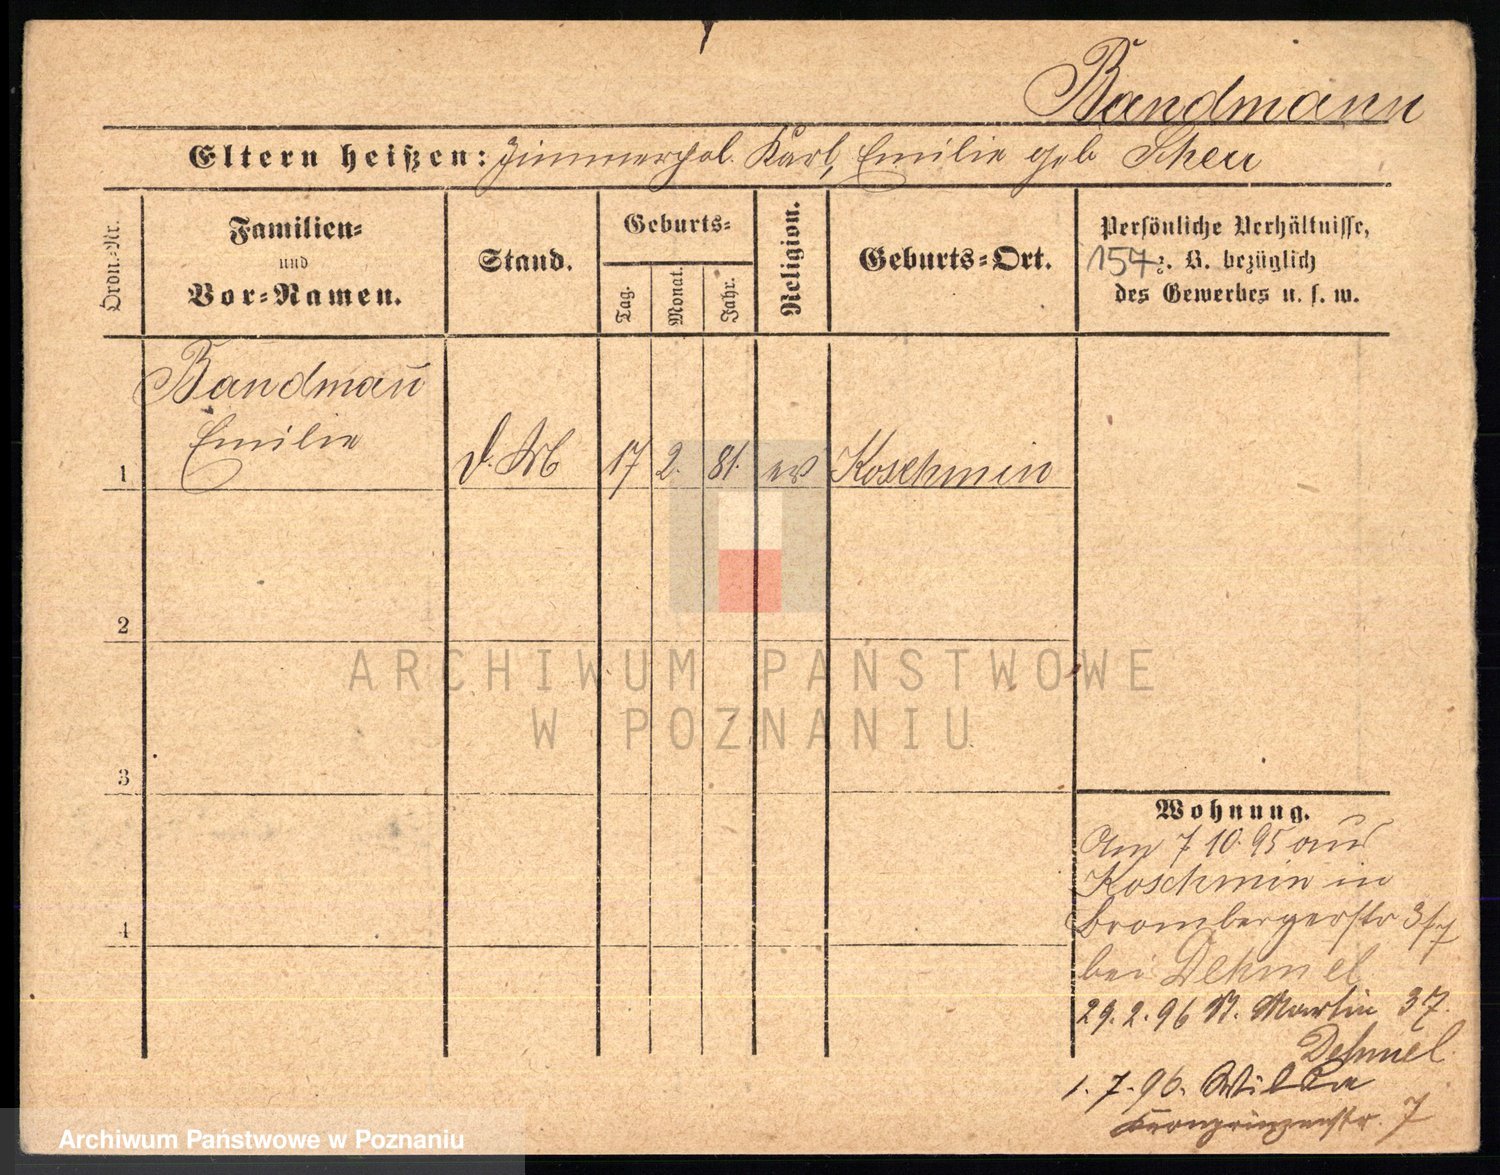 Bandmann
Eltern heißen: Zimmerpol. Karl, Emilie geb Scheu
Ordn.-Nr.
Familien- und Vor-Namen.
Stand.
Geburts-
Tag.
Monat.
Jahr.
Religion.
Geburts-Ort.
Persönliche Verhältnisse,
154 z. B. bezüglich
des Gewerbes u. s. w.
Bandmañ
Emilie
1 d. M 17 2. 81. ev Koschmin
2
3
4
Wohnung.
Am 7 10. 95 aus
Koschmin in
Brombergerstr 3/7
bei Dehmel
29. 2. 96 St. Martin 37.
Dehmel
1. 7. 96. Wilke
Kronprinzenstr. 7
ARCHIWUM PAŃSTWOWE
W POZNANIU
Archiwum Państwowe w Poznaniu